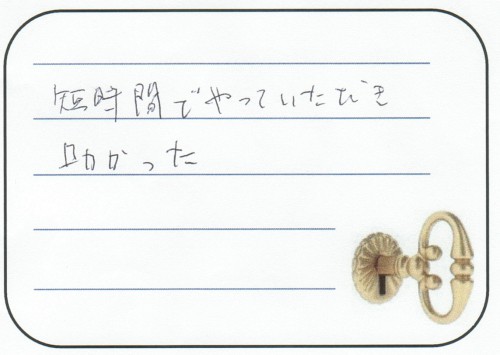 短時間でやっていただき
助かった